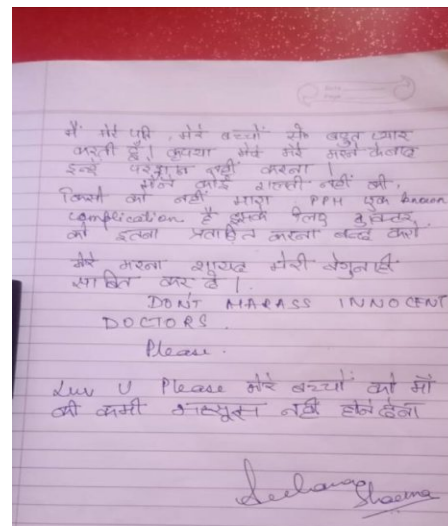 मैं मेरे पति, मेरे बच्चों से बहुत प्यार
करती हूँ। कृपया मेरे मरने के बाद
इन्हें परेशान नहीं करना।
मैंने कोई गलती नहीं की,
किसी को नहीं मारा PPH एक known
complication है इसके लिए डॉक्टर
को इतना प्रताड़ित करना बन्द करो
मेरा मरना शायद मेरी बेगुनाही
साबित कर दे।
DON'T HARASS INNOCENT
DOCTORS.
Please.
Luv U Please मेरे बच्चों को माँ
की कमी महसूस नहीं होने देना
Sharma